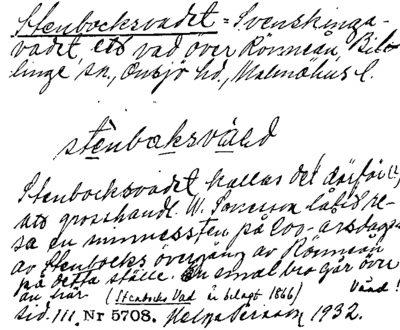 Stenbocksvadet = Svenskinga-
vadet, ett vad över Rönneån, Billinge sn., Onsjö hd., Malmöhus l.
stenboksvad
Stenbocksvadet kallas det därför (!)
att grosshandl. W. låtit re-
sa en minnessten på 200-årsdagen
av Stenbocks övergång av Rönneån
på detta ställe. En smal bro går över
ån här (Stenbocks Vad är belagt 1866) Vänd!
sid. III. Nr 5708. Helge Persson 1932.